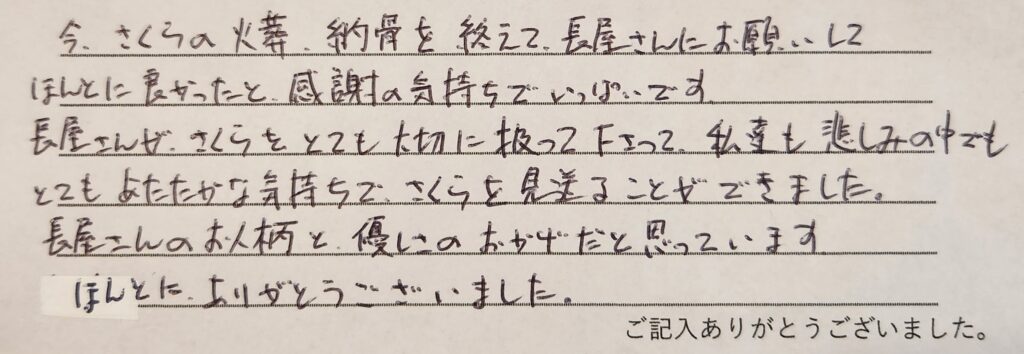 今、さくらの火葬、納骨を終えて、長屋さんにお願いして
ほんとに良かったと、感謝の気持ちでいっぱいです
長屋さんが、さくらをとても大切に扱って下さって、私達も悲しみの中でも
とてもあたたかな気持ちで、さくらを見送ることができました。
長屋さんのお人柄と、優しさのおかげだと思っています
ほんとに、ありがとうございました。
ご記入ありがとうございました。